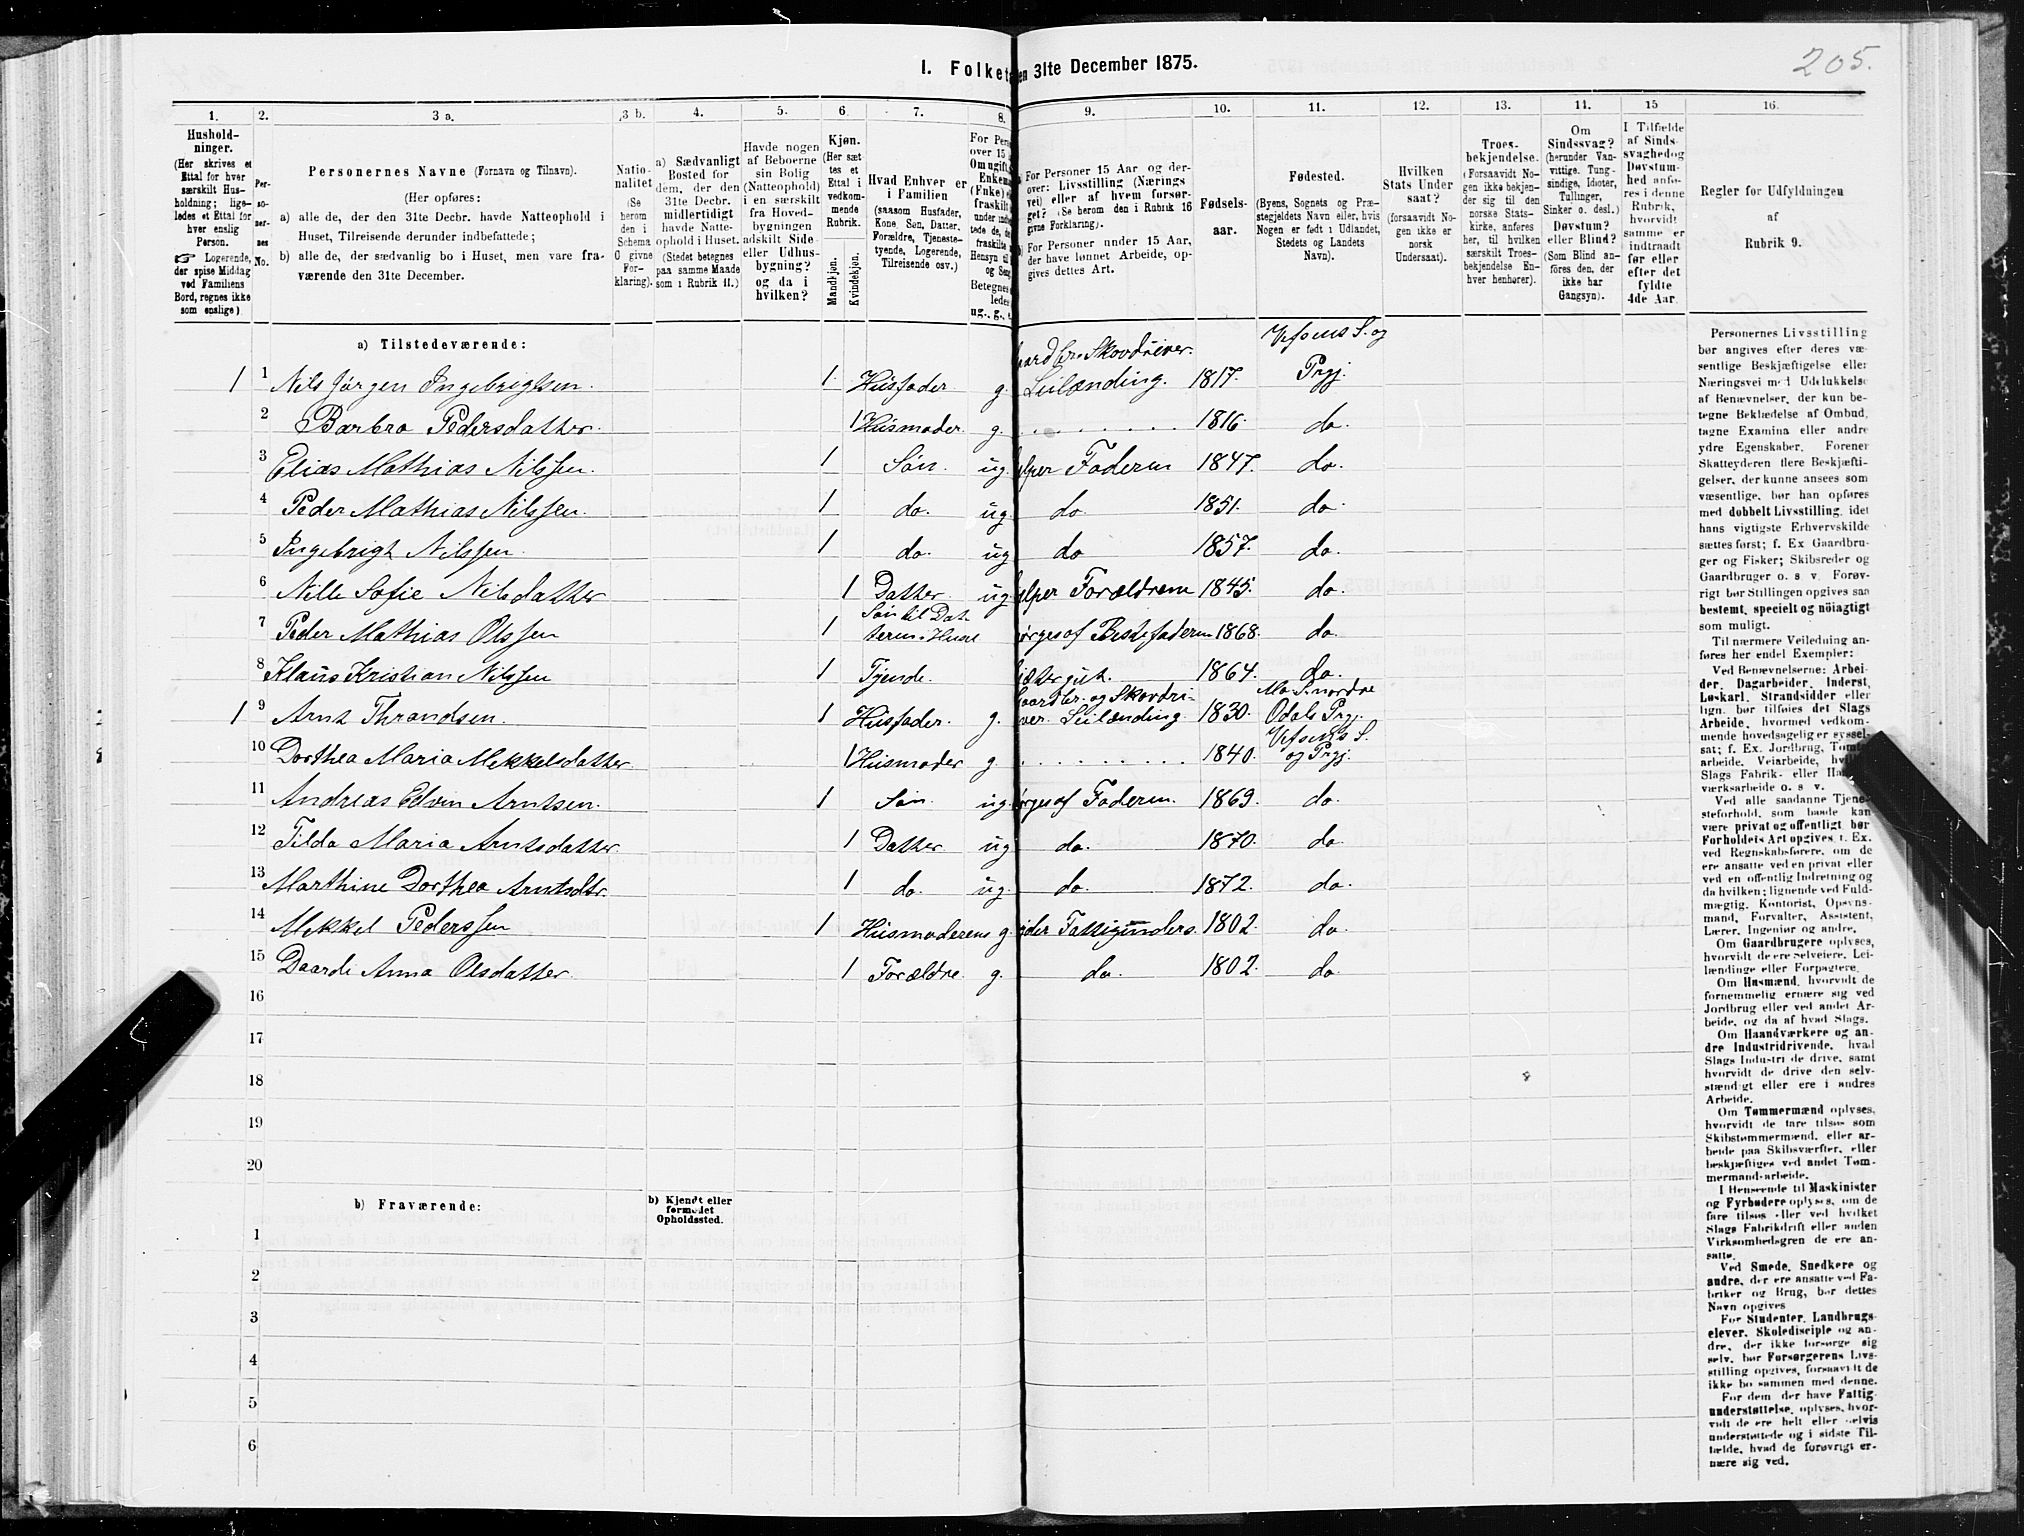 205.
I. Folketa
en 31te December 1875.
1. 2. 3 a. 3 b. 4. 5. 6. 7. 8. 9. 10. 11. 12. 13. 14. 15 16.
Hushold-
ninger.
(Her skrives et
Ettal for hver
særskilt Hus-
holdning; lige-
ledes et Ettal for
hver enslig
Person.
☞ Logerende,
der spise Middag
ved Familiens
Bord, regnes ikke
som enslige)
Per-
so-
ner-
nes
No.
Personernes Navne (Fornavn og Tilnavn).
(Her opføres:
a) alle de, der den 31te Decbr. havde Natteophold i
Huset, Tilreisende derunder indbefattede;
b) alle de, der sædvanlig bo i Huset, men vare fra-
værende den 31te December.
Natio-
nalitet
(Se
herom
den i
Schema
O givne
For-
klaring).
a) Sædvanligt
Bosted for
dem, der den
31te Decbr.
midlertidigt
havde Natte-
ophold i Huset.
(Stedet betegnes
paa samme Maade
som i Rubrik 11.)
Havde nogen
af Beboerne
sin Bolig
(Natteophold)
i en særskilt
fra Hoved-
bygningen
adskilt Side-
eller Udhus-
bygning?
og da i
hvilken?
Kjøn.
(Her sæt
tes et
Ettal i
vedkom-
mende
Rubrik.
Mandkjøn.
Kvindekjøn.
Hvad Enhver er
i Familien
(saasom Husfader,
Kone, Søn, Datter,
Forældre, Tjeneste-
tyende, Logerende,
Tilreisende osv.)
For Pers
over 15
Om ugift,
Enkem
(Fnke) e
fraskilt
under indb
tede de,
fraskilte
Hensyn til
og Seng
Betegnes
ledes
ug., g.,
For Personer 15 Aar og der-
over: Livsstilling (Nærings
vei) eller af hvem forsør-
get? (Se herom den i Rubrik 16
givne Forklaring).
For Personer under 15 Aar,
der have lønnet Arbeide, op-
gives dettes Art.
Fødsels-
aar.
Fødested.
(Byens, Sognets og Præ-
stegjeldets Navn eller, hvis
Nogen er født i Udlandet,
Stedets og Landets
Navn).
Hvilken
Stats Under
saat?
(forsaavidt No-
gen ikke er
norsk
Undersaat).
Troes-
bekjendelse.
(Forsaavidt No-
gen ikke bekjen-
der sig til den
norske Stats-
kirke, anføres
her, til hvilken
særskilt Troes-
bekjendelse En-
hver henhører).
Om
Sindssvag?
(herunder Van-
vittige. Tung-
sindige, Idioter,
Tullinger,
Sinker o. desl.)
Døvstum?
eller Blind?
(Som Blind an-
føres den, der
ikke har
Gangsyn).
I Tilfælde
af Sinds-
svaghed og
Døvstum-
hed anfø-
res i denne
Rubrik,
hvorvidt
samme er
indtraadt
før eller
efter det
fyldte
4de Aar.
Regler for Udfyldningen
af
Rubrik 9.
a) Tilstedeværende:
1 1 Nils Jørgen Ingebrigtsen. 1 Husfader. g. aardbr. Skovdriver. Leilænding. 1817. Vefsens S. og Prgj.
2 Barbro Pedersdatter. 1 Husmoder. g. . . . . . . . . . 1816. do.
3 Elias Mathias Nilssen. 1 Søn. ug. elper Faderen 1847. do.
4 Peder Mathias Nilssen. 1 do. ug. do 1851. do.
5 Ingebrigt Nilssen. 1 do. ug do 1857. do.
6 Nille Sofie Nilsdatter 1 Datter. ug. elper Forældrene 1845. do.
7 Peder Mathias Olssen 1 Søn til Dat- teren i Huset ørges af Bestefaderen 1868. do.
8 Klaus Kristian Nilssen 1 Tjende. jætergut. 1864. do.
1 9 Arnt Thrandsen. 1 Husfader. g. Gaardbr. og Skovdri- ver. Leilænding. 1830. Mo S. nordre Odals Prgj.
10 Dorthea Maria Mekkelsdatter 1 Husmoder g. . . . . . . . . . 1840. Vefsens S. og Prgj.
11 Andreas Edvin Arntsen. 1 Søn. ug. ørges af Faderen. 1869. do.
12 Tilda Maria Arntsdatter. 1 Datter ug. do. 1870. do.
13 Marthine Dorthea Arntsdtr. 1 do. ug. do. 1872. do.
14 Mekkel Pederssen 1 Husmoderens g. yder Fattigunders. 1802. do.
15 Daarde Anna Olsdatter. 1 Forældre. g. do. 1802. do.
16
17
18
19
20
b) Fraværende:
b) Kjendt eller
formodet
Opholdssted.
1
2
3
4
5
6
Personernes Livsstilling
bør angives efter deres væ-
sentlige Beskjæftigelse eller
Næringsvei med Udelukkelse
af Benævnelser, der kun be-
tegne Beklædelse af Ombud,
tagne Examina eller andre
ydre Egenskaber. Forener
Skatteyderen flere Beskjæfti-
gelser, der kunne ansees som
væsentlige, bør han opføres
med dobbelt Livsstilling, idet
hans vigtigste Erhvervskilde
sættes først; f. Ex Gaardbru-
ger og Fisker; Skibsreder og
Gaardbruger o. s. v. Forøv-
rigt bør Stillingen opgives saa
bestemt, specielt og nöiagtigt
som muligt.
Til nærmere Veiledning an-
føres her endel Exempler:
Ved Benævnelserne: Arbei-
der, Dagarbeider, Inderst,
Løskarl, Strandsidder eller
lign. bør tilføies det Slags
Arbeide, hvormed vedkom-
mende hovedsagelig er syssel-
sat; f. Ex. Jordbrug, Tømt
arbeide, Veiarbeide, hvil
Slags Fabrik- eller Ha
værksarbeide o. s. v.
Ved alle saadanne Tjene-
steforhold, som baade kan
være privat og offentligt, bør
Forholdets Art opgives, t. Ex.
ved Regnskabsførere, om de
ere ansatte ved en privat eller
ved en offentlig Indretning og
da hvilken; lignende ved Fuld-
mægtig, Kontorist, Opsyns-
mand, Forvalter, Assistent,
Lærer, Ingeniør og andre.
Om Gaardbrugere oplyses,
hvorvidt de ere Selveiere, Lei-
lændinge eller Forpagtere.
Om Husmænd, hvorvidt de
fornemmelig ernære sig ved
Jordbrug eller ved andet Ar-
beide, og da af hvad Slags.
Om Haandværkere og an-
dre Industridrivende, hvad
Slags Industri de drive, samt
hvorvidt de drive den selv-
stændigt eller ere i andres
Arbeide.
Om Tømmermænd oplyses,
hvorvidt de fare tilsøs som
Skibstømmermænd, eller ar-
beide paa Skibsværfter, eller
beskjæftiges ved andet Tøm-
mermand-arbeide.
I Henseende til Maskinister
og Fyrbødere oplyses, om de
fare tilsøs eller ved hvilket
Slags Fabrikdrift eller anden
Virksomhedsgren de ere an-
satte.
Ved Smede, Snedkere og
andre, der ere ansatte ved Fa-
briker og Brug, bør dettes
Navn opgives
For Studenter, Landbrugs-
elever, Skoledisciple og an-
dre, der ikke forsørge sig
selv, bør Forsørgerens Livs-
stilling opgives, forsaavidt de
ikke bo sammen med denne.
For dem, der have Fattig-
understøttelse, oplyses, hvor-
vidt de ere helt eller delvis
understøttede og i sidste Til-
fælde, hvad de forøvrigt er-
nære sig ved.